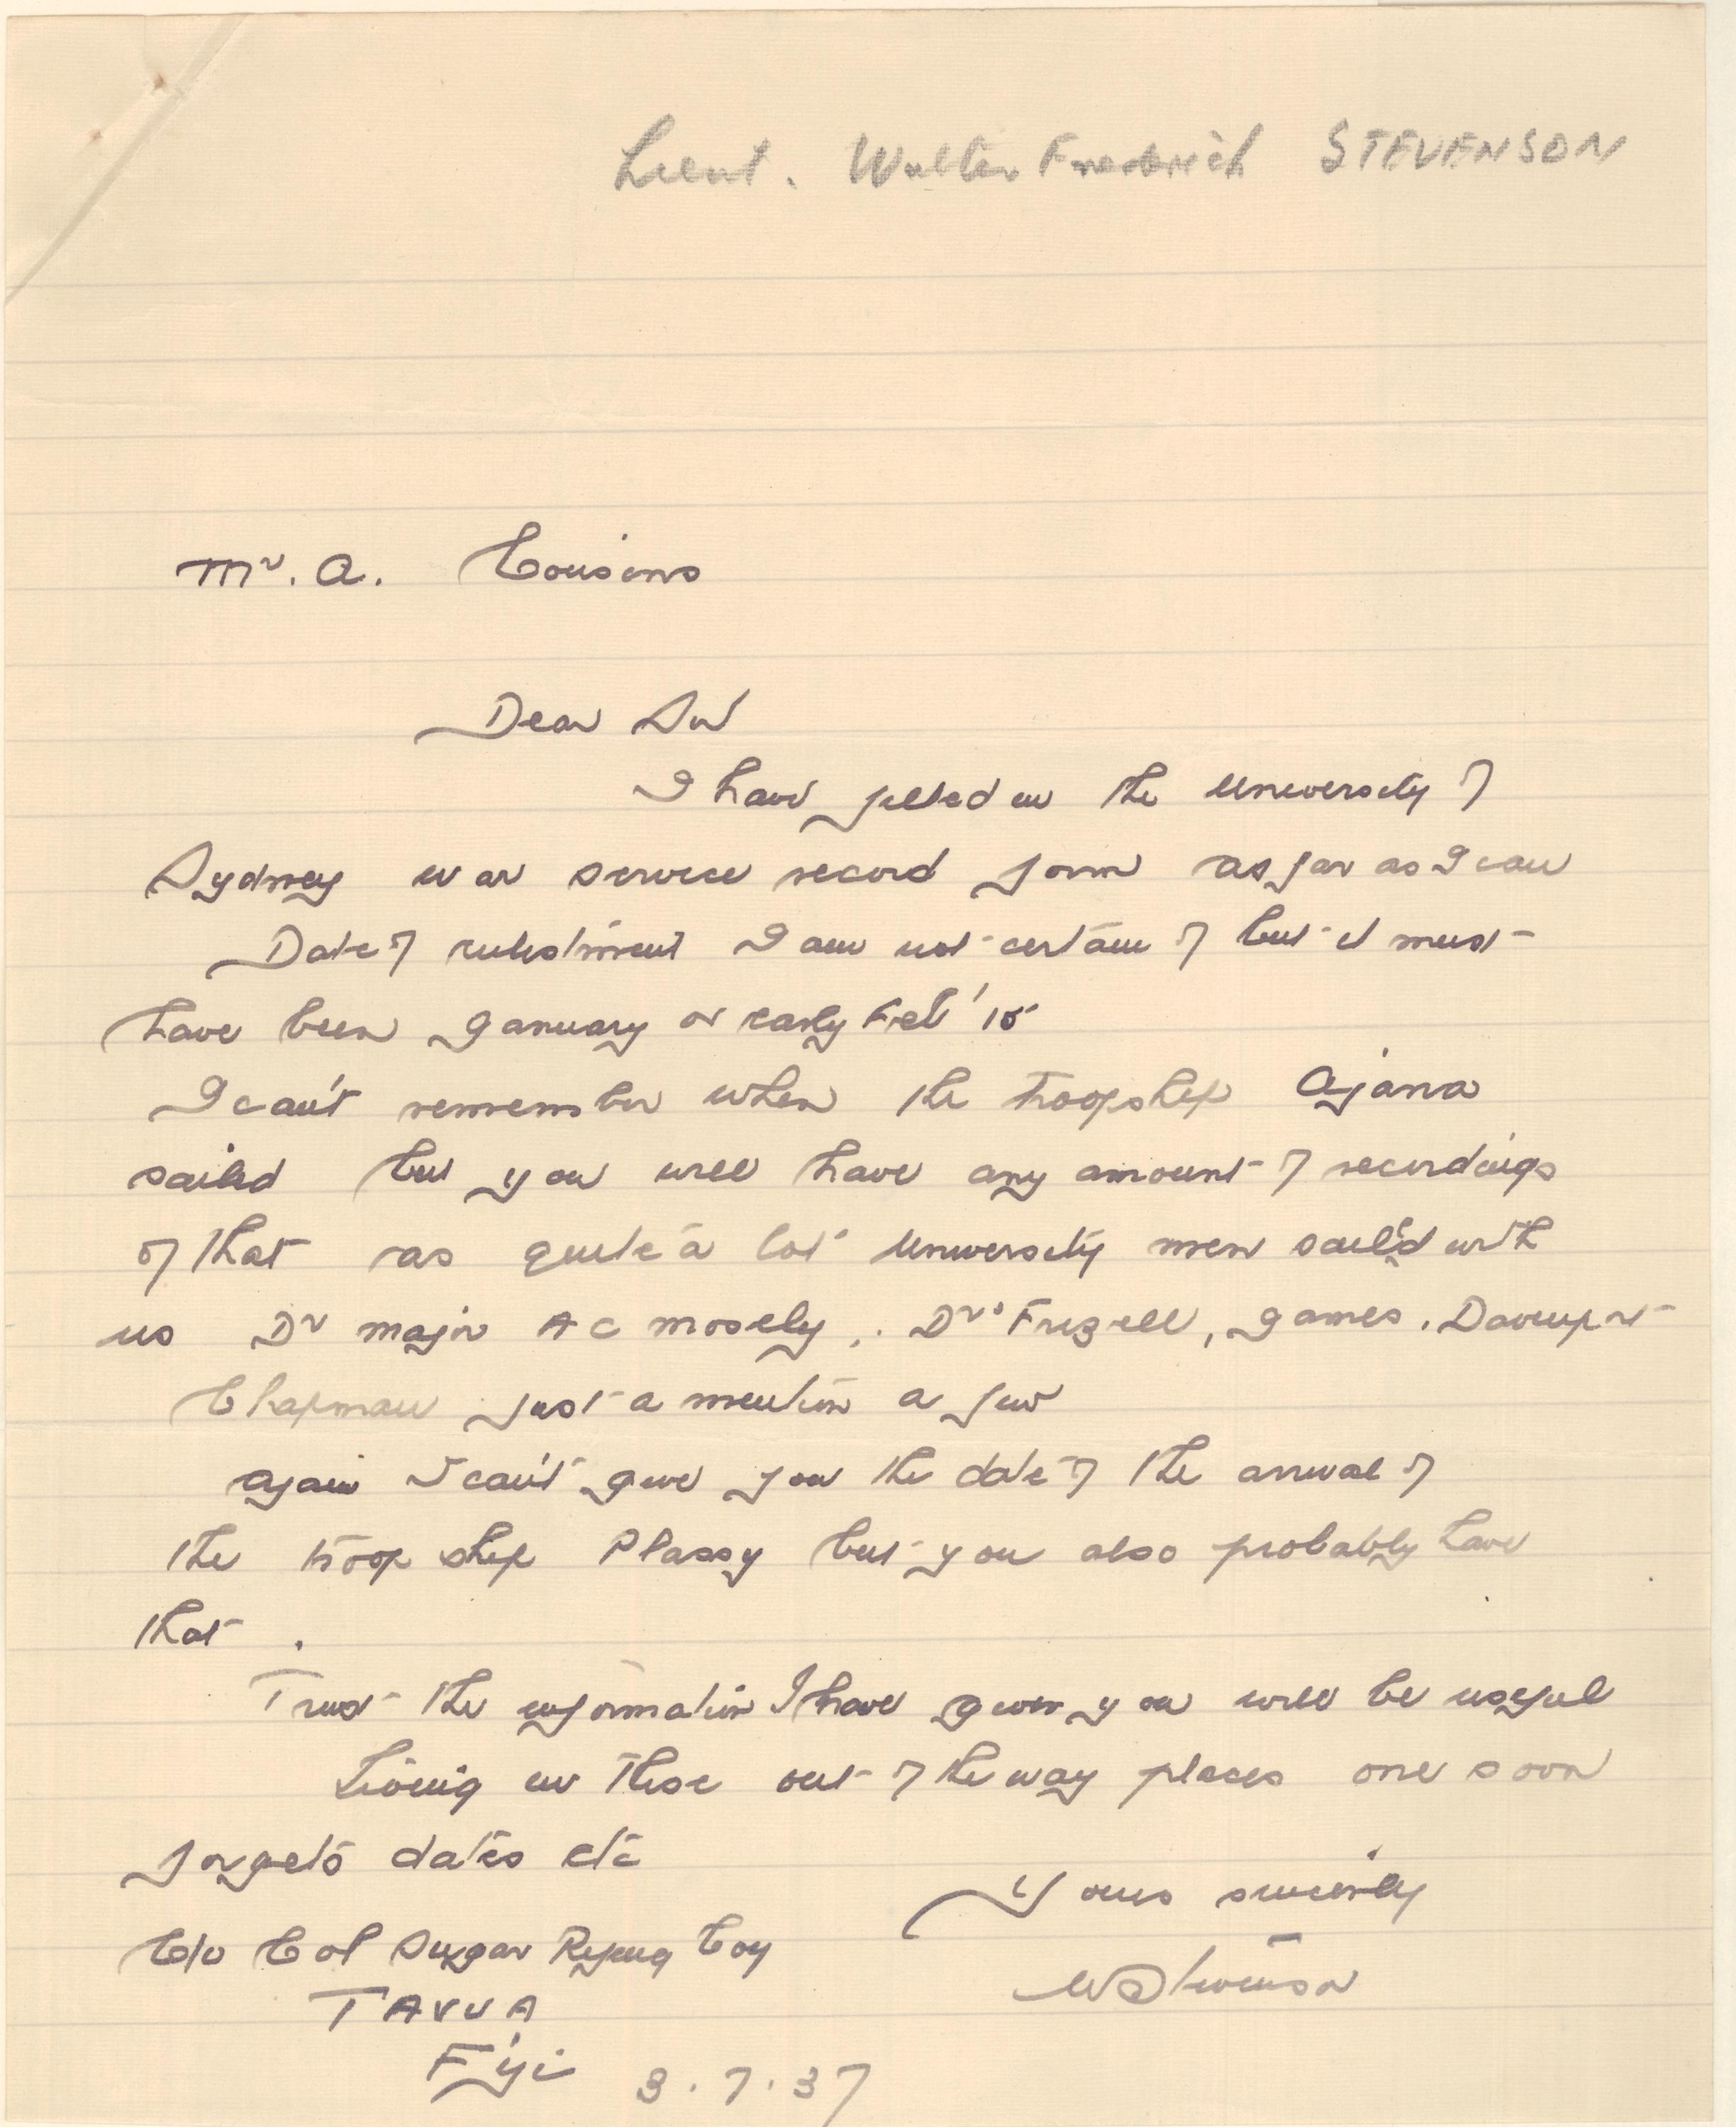 Lieut. Walter Frederick STEVENSON
Mr. A. Cousens
Dear Sir
I have filled in the University of
Sydney war service record form as far as I can
Date of enlistment I am not certain of but it must
have been January or early Feb' 15
I can't remember when the troopship Ajana
sailed but you will have any amount of recordings
of that as quite a lot University men sailed with
us Dr Major A C Mosely, Drs Frizell, James, Davenport
Chapman just a mention a few
again I can't give you the date of the arrival of
the troop ship Plassy but you also probably have
that.
Trust the information I have given you will be useful
Living in these out of the way places one soon
forgets dates etc
Yours sincerely
W Stevenson
C/o Col Sugar Refining Coy
TAVUA
Fiji 3.7.37